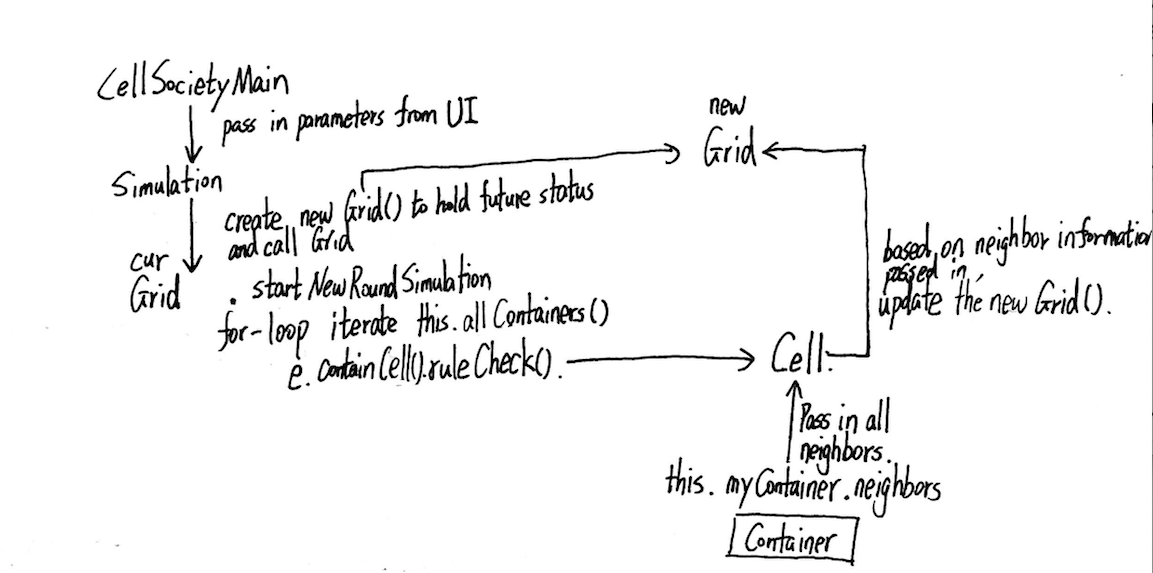 CellSocietyMain
pass in parameters from UI
Simulation
create new Grid() to hold future status
and call Grid
. start New Round Simulation
for-loop iterate this.all Containers()
e. contain Cell().rule Check().
cur
Grid
new
Grid
based on neighbor information
passed in,
update the new Grid().
Cell.
Pass in all
neighbors.
this. my Container.neighbors
Container